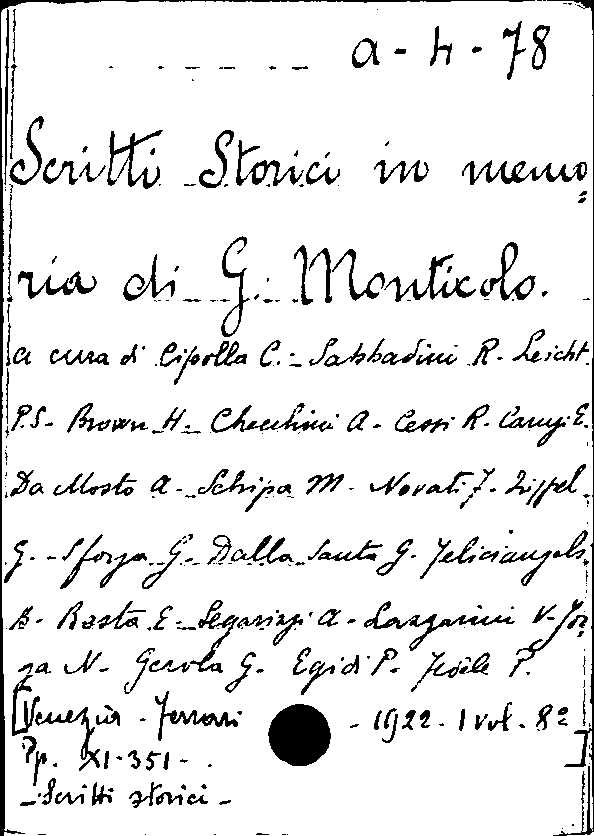 a - h - 78
Scritti Storici in memo=
ria di G. Monticolo.
a cura di Cipolla C. - Sabbadini R. - Leicht
P.S. - Brown H - Checchini A - Cessi R. - Campi E.
Da Mosto A - Schipa M - Novati F. - Zippel
G. - Sforza G. - Dalla Santa G. - Feliciangeli
B - Rasta E - Segarizzi A - Lazzarini V - Jor
ga N - Gerola G - Egidi P. - P.
[Venezia - Ferrari - 1922 - 1 vol. - 8º
Pp. XI-351 - ]
- Scritti storici -